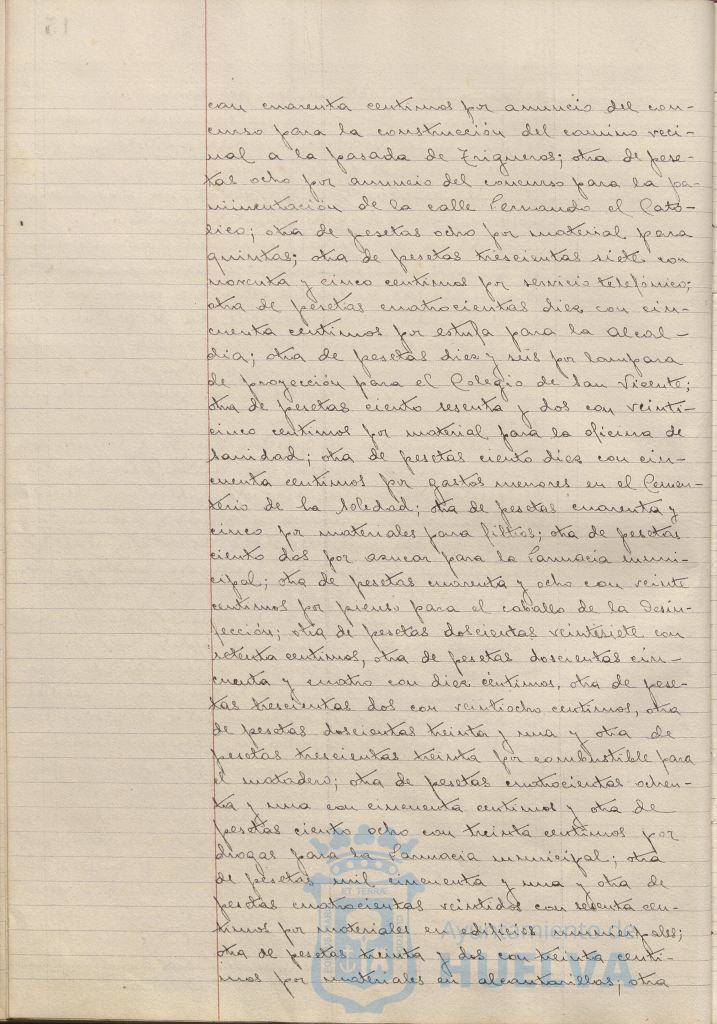 con cuarenta centimos por anuncio del con-
curso para la construcción del camino veci-
nal a la pasada de Trigueros; otra de pese-
tas ocho por anuncio del concurso para la pa-
vimentación de la calle Fernando el Cató-
lico; otra de pesetas ocho por material para
quintas; otra de pesetas trescientas siete con
noventa y cinco centimos por servicio telefónico;
otra de pesetas cuatrocientas diez con cin-
cuenta centimos por estufa para la Alcal-
dia; otra de pesetas diez y seis por lampara
de proyección para el Colegio de San Vicente;
otra de pesetas ciento sesenta y dos con veinti-
cinco centimos por material para la oficina de
Sanidad; otra de pesetas ciento diez con cin-
cuenta centimos por gastos menores en el Cemen-
terio de la Soledad; otra de pesetas cuarenta y
cinco por materiales para filtros; otra de pesetas
ciento dos por azucar para la Farmacia muni-
cipal; otra de pesetas cuarenta y ocho con veinte
centimos por pienso para el caballo de la Desin-
fección; otra de pesetas doscientas veintisiete con
setenta centimos, otra de pesetas doscientas cin-
cuenta y cuatro con diez céntimos, otra de pese-
tas trescientas dos con veintiocho centimos, otra
de pesetas doscientas treinta y una y otra de
pesetas trescientas treinta por combustible para
el matadero; otra de pesetas cuatrocientas ochen-
ta y una con cincuenta centimos y otra de
pesetas ciento ocho con treinta centimos por
drogas para la Farmacia municipal; otra
de pesetas mil cincuenta y una y otra de
pesetas cuatrocientas veintidos con sesenta cen-
timos por materiales en edificios municipales;
otra de pesetas treinta y dos con treinta centi-
mos por materiales en alcantarillas; otra
Ayuntamiento de
HUELVA